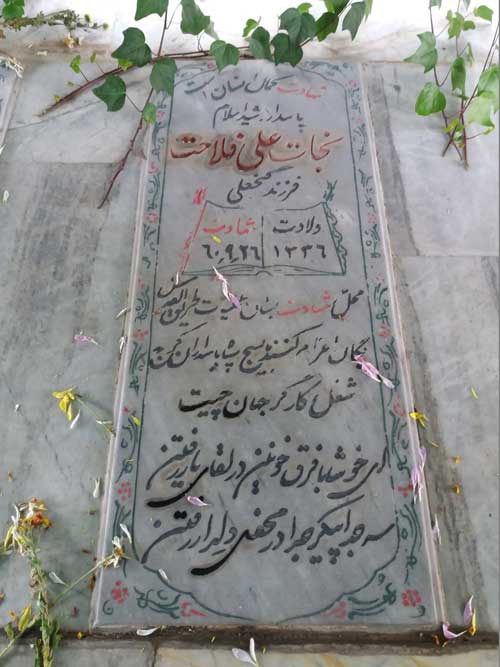 شهادت کمال انسان است
پاسدار شهید اسلام
نجات علی فلاحت
فرزند گنجعلی
ولادت شهادت
۱۳۳۶ ۶۰٫۹٫۲۶
محل شهادت بستان عملیات طریق القدس
مکان اعزام کننده بسیج سپاه پاسداران کرج
شغل کارگر جهان چیت
ای خوشا با فرق خونین در لقای یار رفتن
سر جدا پیکر جدا در محفل دلدار رفتن